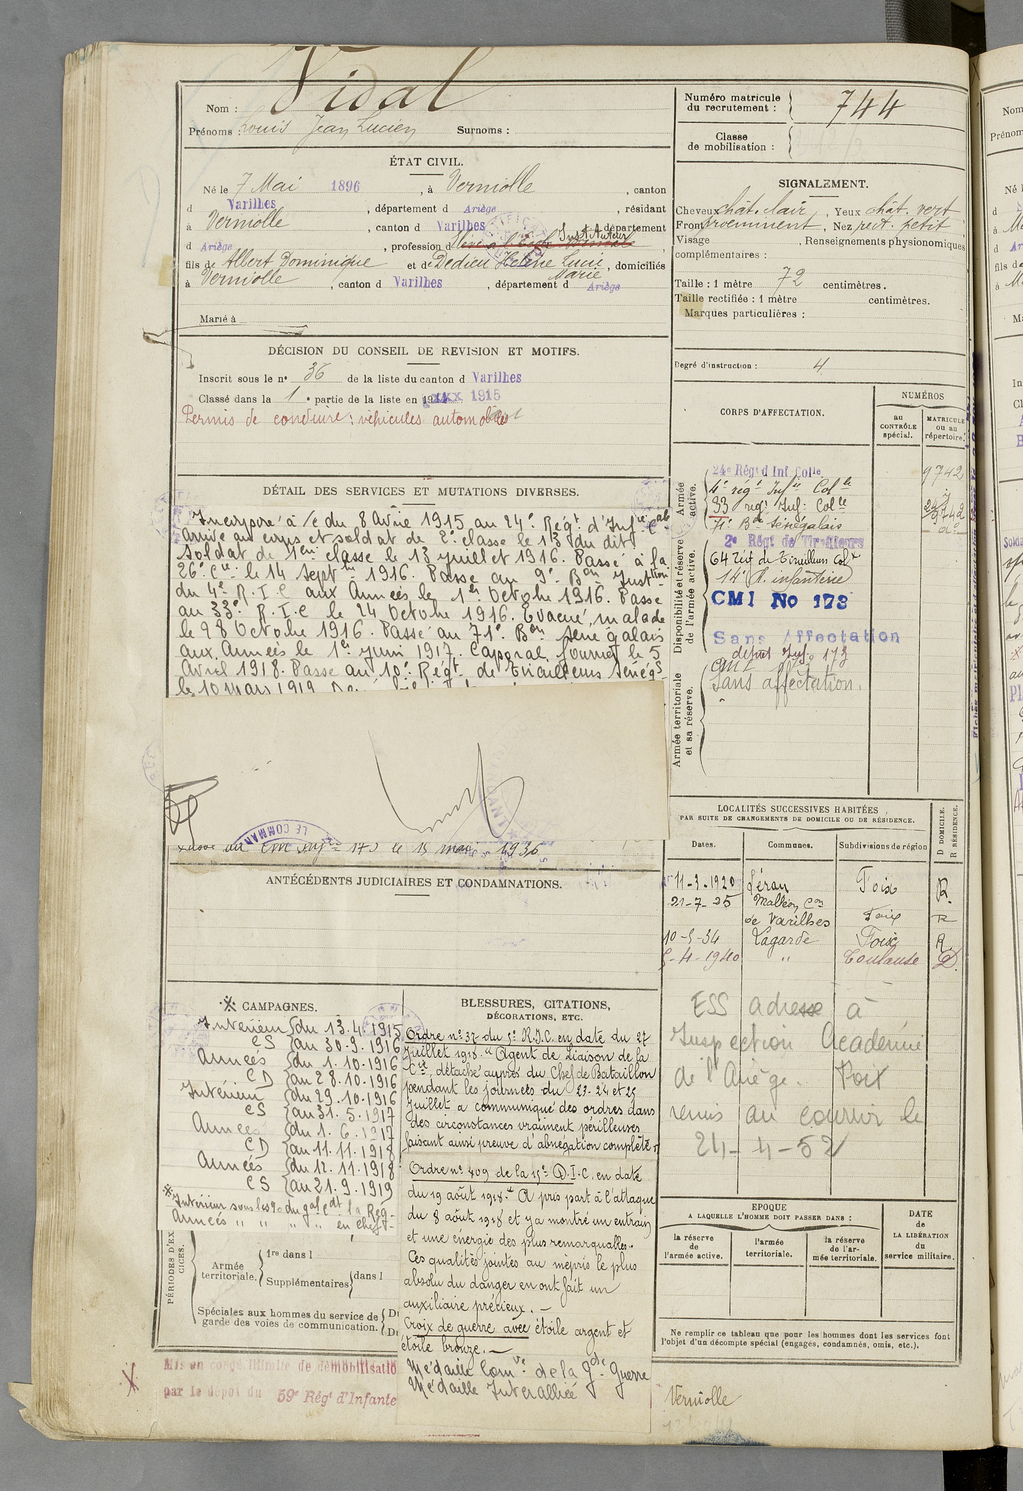 Nom : Vidal
Prénoms : Louis Jean Lucien Surnoms :
Numéro matricule du recrutement : 744
Classe de mobilisation :
ÉTAT CIVIL.
Né le 7 Mai 1896, à Verniolle, canton
d Varilhes, département d Ariège, résidant
à Verniolle, canton d Varilhes, département
d Ariège, profession d Instituteur
fils de Albert Dominique et de Dedieu Hélène Lucie Marie, domiciliés
à Verniolle, canton d Varilhes, département d Ariège
Marié à
SIGNALEMENT.
Cheveux chât. clair, Yeux chât. vert
Front proéminent, Nez rect. petit
Visage , Renseignements physionomiques
complémentaires :
Taille : 1 mètre 72 centimètres.
Taille rectifiée : 1 mètre centimètres.
Marques particulières :
Degré d'instruction : 4
DÉCISION DU CONSEIL DE REVISION ET MOTIFS.
Inscrit sous le n° 36 de la liste du canton d Varilhes
Classé dans la 1e partie de la liste en 1915
Permis de conduire : véhicules automobiles
CORPS D'AFFECTATION.
NUMÉROS
au CONTRÔLE spécial.
MATRICULE ou au répertoire.
Armée active.
24e Régt d Inf Colle
9742
4e régt Infie Colle
33 regt Inf: Colle
71e Bon Sénégalais
Disponibilité et réserve de l'armée active.
2e Régt de Tirailleurs
64 régt de Tirailleurs Colx
14e R. infanterie
CMI No 173
Sans Affectation
dépôt Inf. 173
Armée territoriale et sa réserve.
CMI
Sans affectation.
DÉTAIL DES SERVICES ET MUTATIONS DIVERSES.
Incorporé à /c du 8 Avril 1915 au 24e Régt d'Infie Cale
Arrivé au corps et soldat de 2e classe le 13 du dit.
Soldat de 1ère classe le 13 juillet 1916. Passé à la
26e Cie le 14 Septbre 1916. Passé au 9e Bon Instton
du 4e R.I.C aux Armées le 1er Octobre 1916. Passé
au 33e R.I.C le 24 Octobre 1916. Évacué, malade
le 28 Octobre 1916. Passé au 71e Bon Sénégalais
aux Armées le 1er juin 1917. Caporal fourrier le 5
Avril 1918. Passé au 10e Régt de Tirailleurs Sénégs
le 10 mars 1919.
LE COMMAN
Passé au CM Infie 173 le 15 mai 1936
ANTÉCÉDENTS JUDICIAIRES ET CONDAMNATIONS.
LOCALITÉS SUCCESSIVES HABITÉES
PAR SUITE DE CHANGEMENTS DE DOMICILE OU DE RÉSIDENCE.
Dates. Communes. Subdivisions de région D DOMICILE. R RÉSIDENCE.
11-3-1920 Léran Foix R.
21-7-25 Malléon Con de Varilhes Foix R
10-5-34 Lagarde Foix R.
5-4-1940 " Toulouse D.
ESS adresse à
Inspection Académie
de l'Ariège. Foix
remis au courrier le
24-4-52
※ CAMPAGNES.
Intérieur du 13.4.1915
CS au 30.9.1916
Armées du 1.10.1916
CD au 28.10.1916
Intérieur du 29.10.1916
CS au 31.5.1917
Armées du 1.6.1917
CD au 11.11.1918
Armées du 12.11.1918
CS au 21.9.1919
※ Intérieur sous les o du gal cdt la Rég-
Armées " " " " en chef-
BLESSURES, CITATIONS,
DÉCORATIONS, ETC.
Ordre n° 37 du 5e R.I.C. en date du 27
Juillet 1918. "Agent de liaison de la
Cie, détaché auprès du Chef de Bataillon
pendant les journées du 23-24 et 25
Juillet a communiqué des ordres dans
des circonstances vraiment périlleuses
faisant ainsi preuve d'abnégation complète"
Ordre n° 409 de la 15e D.I.C. en date
du 19 août 1918. "A pris part à l'attaque
du 8 août 1918 et y a montré un entrain
et une énergie des plus remarquables.
Ces qualités jointes au mépris le plus
absolu du danger en ont fait un
auxiliaire précieux. —
Croix de guerre avec étoile argent et
étoile bronze. —
Médaille Comve de la gde Guerre
Médaille Interalliée
PÉRIODES D'EXERCICES.
Armée territoriale.
1re dans l
Supplémentaires dans l
Spéciales aux hommes du service de
garde des voies de communication.
Mis en congé illimité de démobilisatio
par le dépôt du 59e Régt d'Infante
ÉPOQUE
A LAQUELLE L'HOMME DOIT PASSER DANS :
la réserve de l'armée active.
l'armée territoriale.
la réserve de l'armée territoriale.
DATE de LA LIBÉRATION du service militaire.
Ne remplir ce tableau que pour les hommes dont les services font
l'objet d'un décompte spécial (engagés, condamnés, omis, etc.).
Verniolle